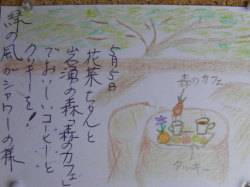 5月5日
花菜ちゃんと
岩湧の森「森のカフェ」
でおいしいコーヒーと
クッキーを!
緑の風がシャワーの様
森のカフェ
クッキー